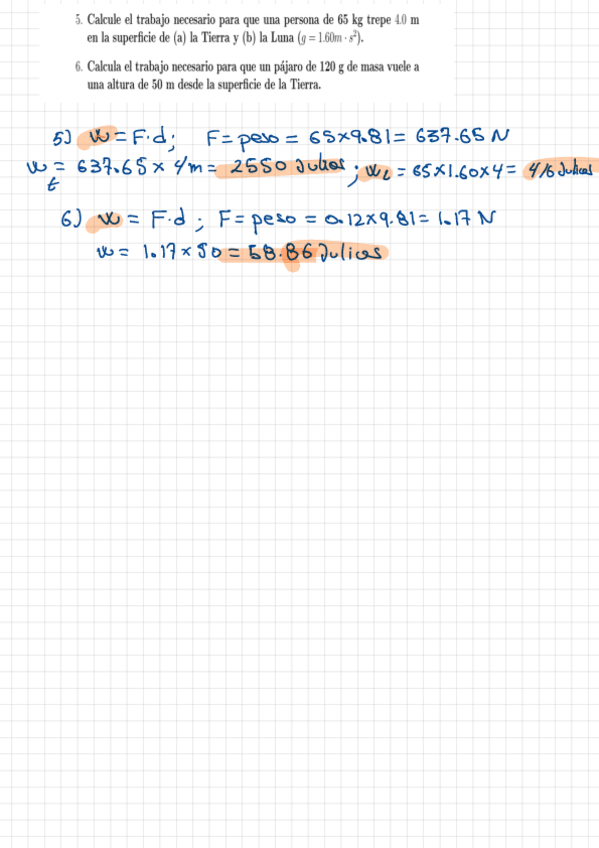 5. Calcule el trabajo necesario para que una persona de 65 kg trepe 4.0 m
en la superficie de (a) la Tierra y (b) la Luna (g = 1.60m · s²).
6. Calcula el trabajo necesario para que un pájaro de 120 g de masa vuele a
una altura de 50 m desde la superficie de la Tierra.
5) W = F·d; F = peso = 65x9.81 = 637.65 N
W_t = 637.65 x 4m = 2550 Julios ; W_L = 65x1.60x4 = 416 Julios
6) W = F·d ; F = peso = 0.12x9.81 = 1.17 N
W = 1.17 x 50 = 58.86 Julios